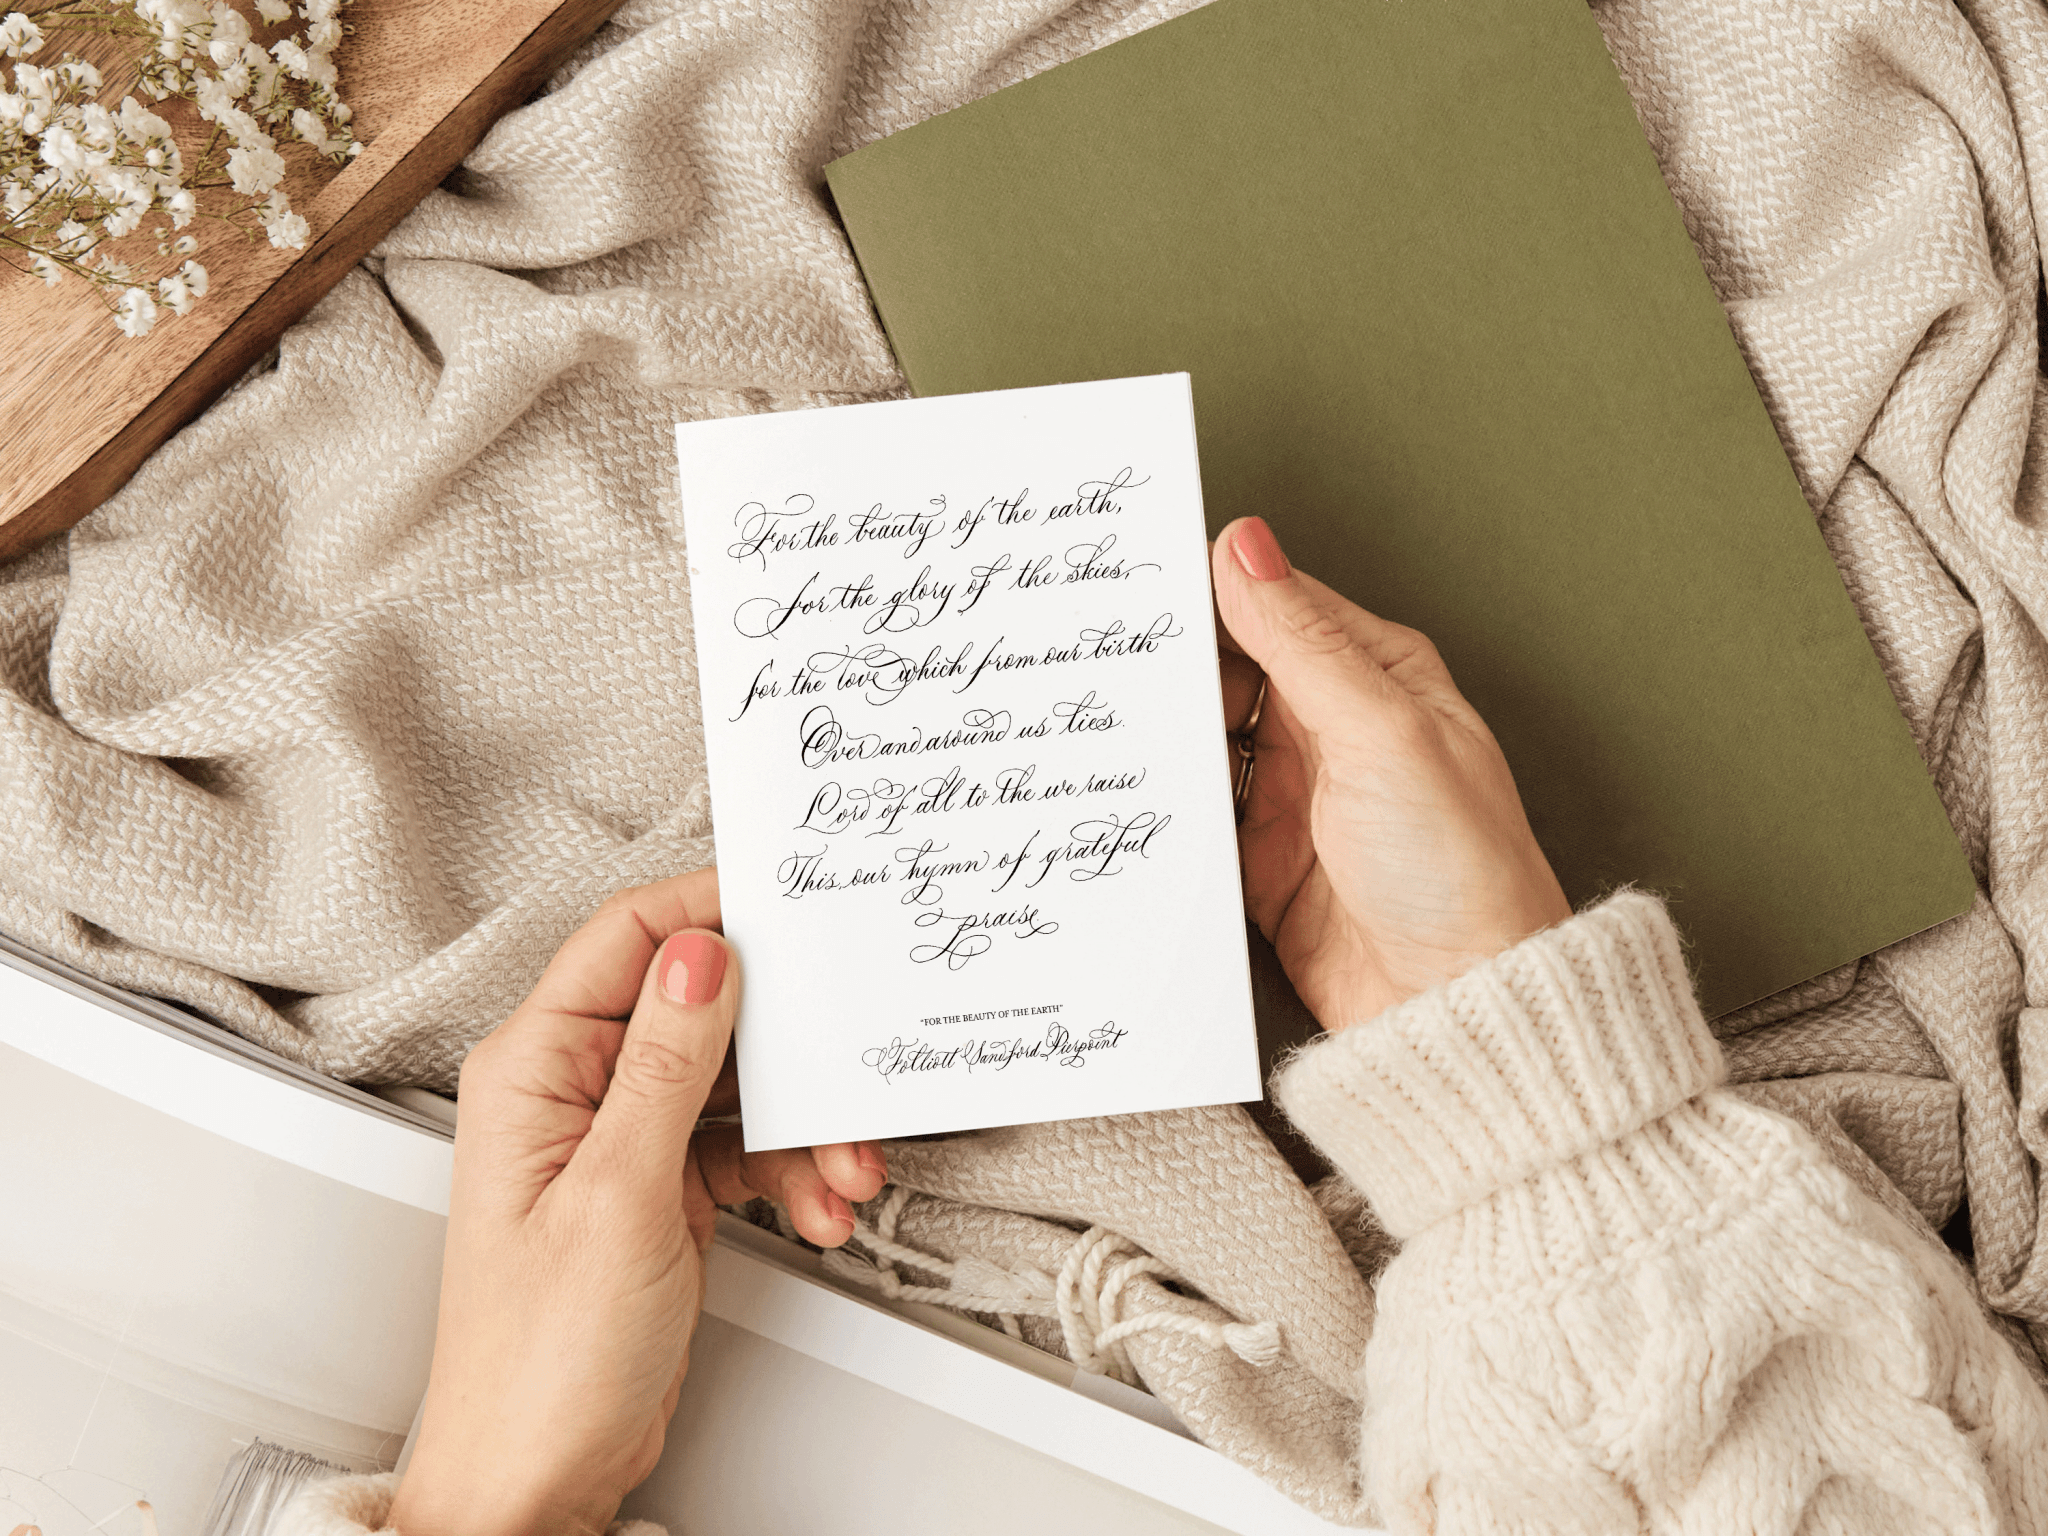 For the beauty of the earth,
for the glory of the skies,
for the love which from our birth
Over and around us lies.
Lord of all to the we raise
This, our hymn of grateful
praise.
"FOR THE BEAUTY OF THE EARTH"
Folliott Sandford Pierpoint